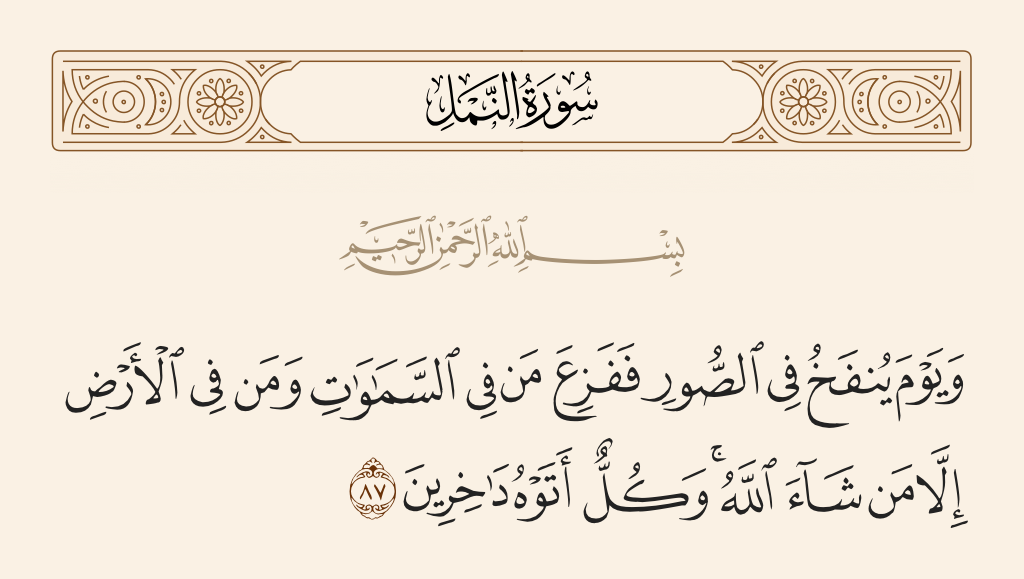 سُورَةُ النَّمْلِ
بِسْمِ ٱللَّهِ ٱلرَّحْمَٰنِ ٱلرَّحِيمِ
وَيَوْمَ يُنفَخُ فِى ٱلصُّورِ فَفَزِعَ مَن فِى ٱلسَّمَٰوَٰتِ وَمَن فِى ٱلْأَرْضِ
إِلَّا مَن شَآءَ ٱللَّهُ ۚ وَكُلٌّ أَتَوْهُ دَٰخِرِينَ ٨٧